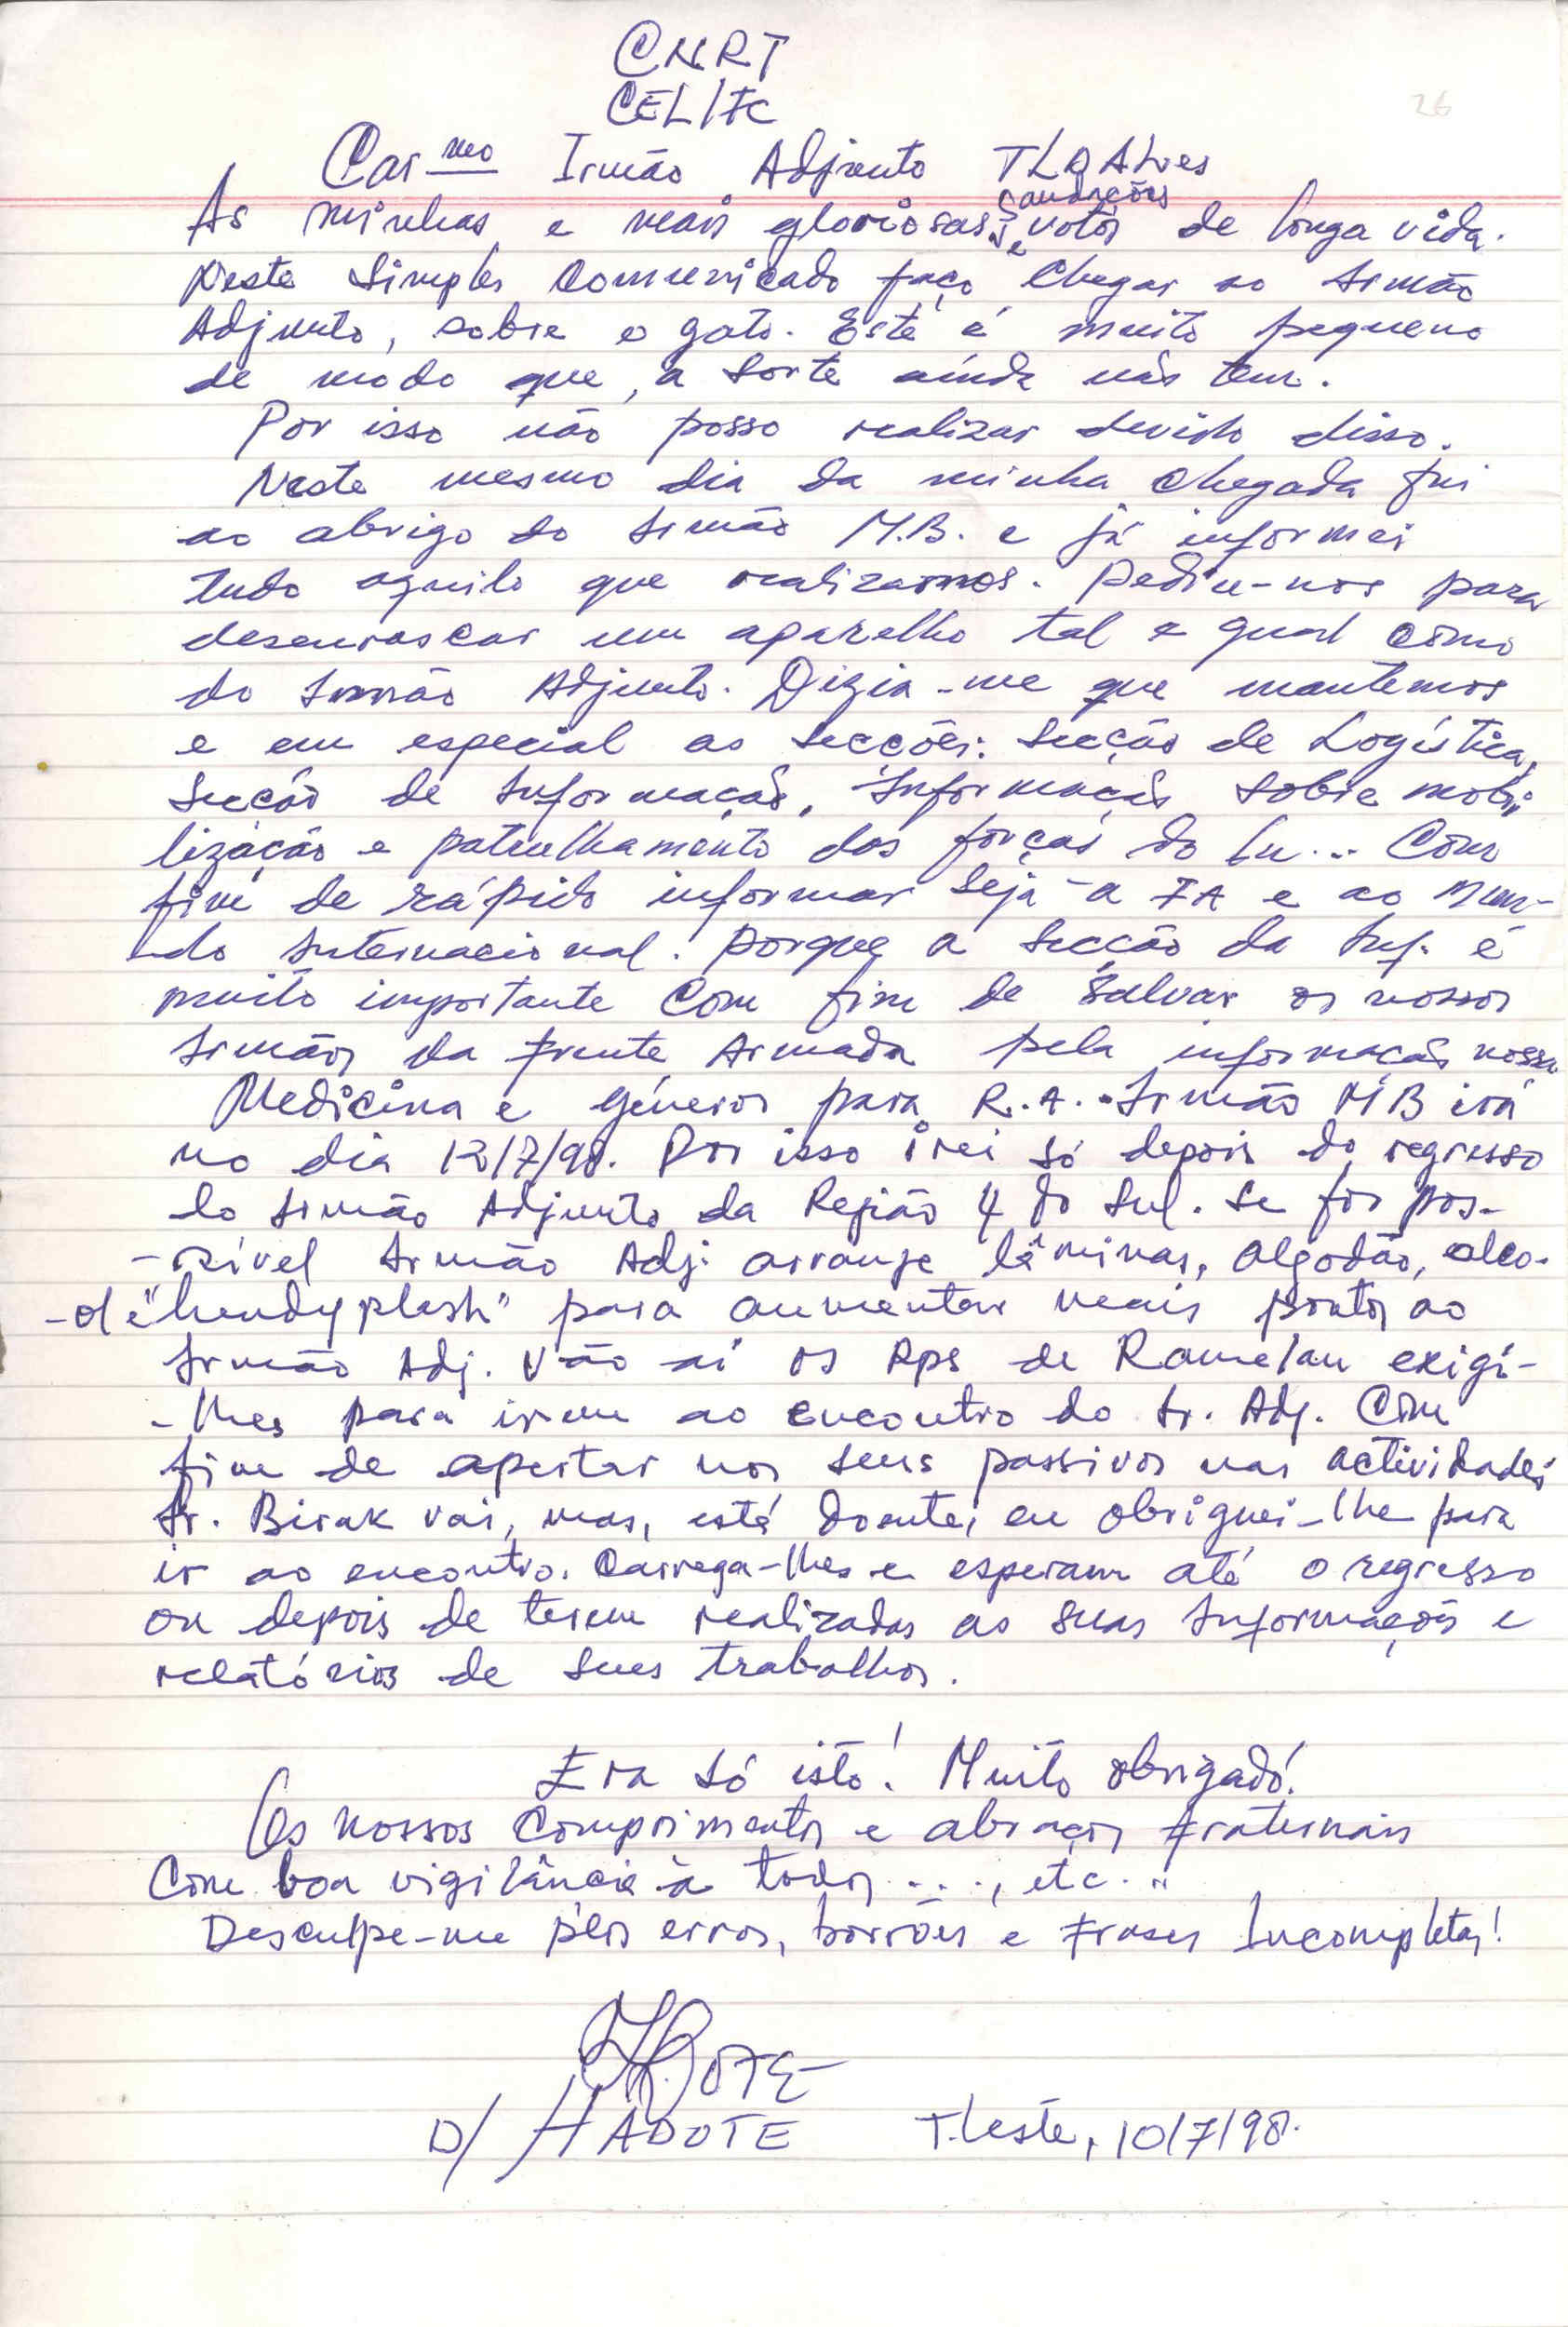 CNRT
CEL/FC
26
Car mo Irmão Adjunto TLO Alves
As minhas e mais gloriosas saudações e votos de longa vida.
Neste simples comunicado faço chegar ao Irmão
Adjunto, sobre o gato. Este é muito pequeno
de modo que, a sorte ainda não tem.
Por isso não posso realizar devido disso.
Neste mesmo dia da minha chegada fui
ao abrigo do Irmão M.B. e já informei
tudo aquilo que realizamos. Pediu-nos para
desenrascar um aparelho tal e qual como
do Irmão Adjunto. Dizia-me que mantemos
e em especial as secções: Secção de Logística,
Secção de Informação, Informação sobre mobi
lização e patrulhamento das forças do In... Com
fim de rápido informar seja a FA e ao Mun-
-do Internacional. Porque a secção da Inf. é
muito importante com fim de salvar os nossos
Irmãos da Frente Armada pela informação nossa
Medicina e géneros para R.A. Irmão MB irá
no dia 12/7/98. Por isso irei só depois do regresso
do Irmão Adjunto da Região 4 do Sul. Se for pos-
-sível Irmão Adj. arranje lâminas, algodão, alco-
-ol e "hendyplash" para aumentar mais pontos ao
Irmão Adj. Vão aí os Rps de Ramelau exigi-
-lhes para irem ao encontro do Ir. Adj. Com
fim de apertar nos seus passivos nas actividades
Ir. Birak vai, mas, está doente, eu obriguei-lhe para
ir ao encontro. Carrega-lhes e esperam até o regresso
ou depois de terem realizadas as suas Informações e
relatórios de seus trabalhos.
Era só isto! Muito obrigado!
Os nossos comprimentos e abraços fraternais
Com boa vigilância à todos ..., etc...
Desculpe-me p'los erros, borrões e frases Incompletas!
D/ HADOTE T.Leste, 10/7/98.